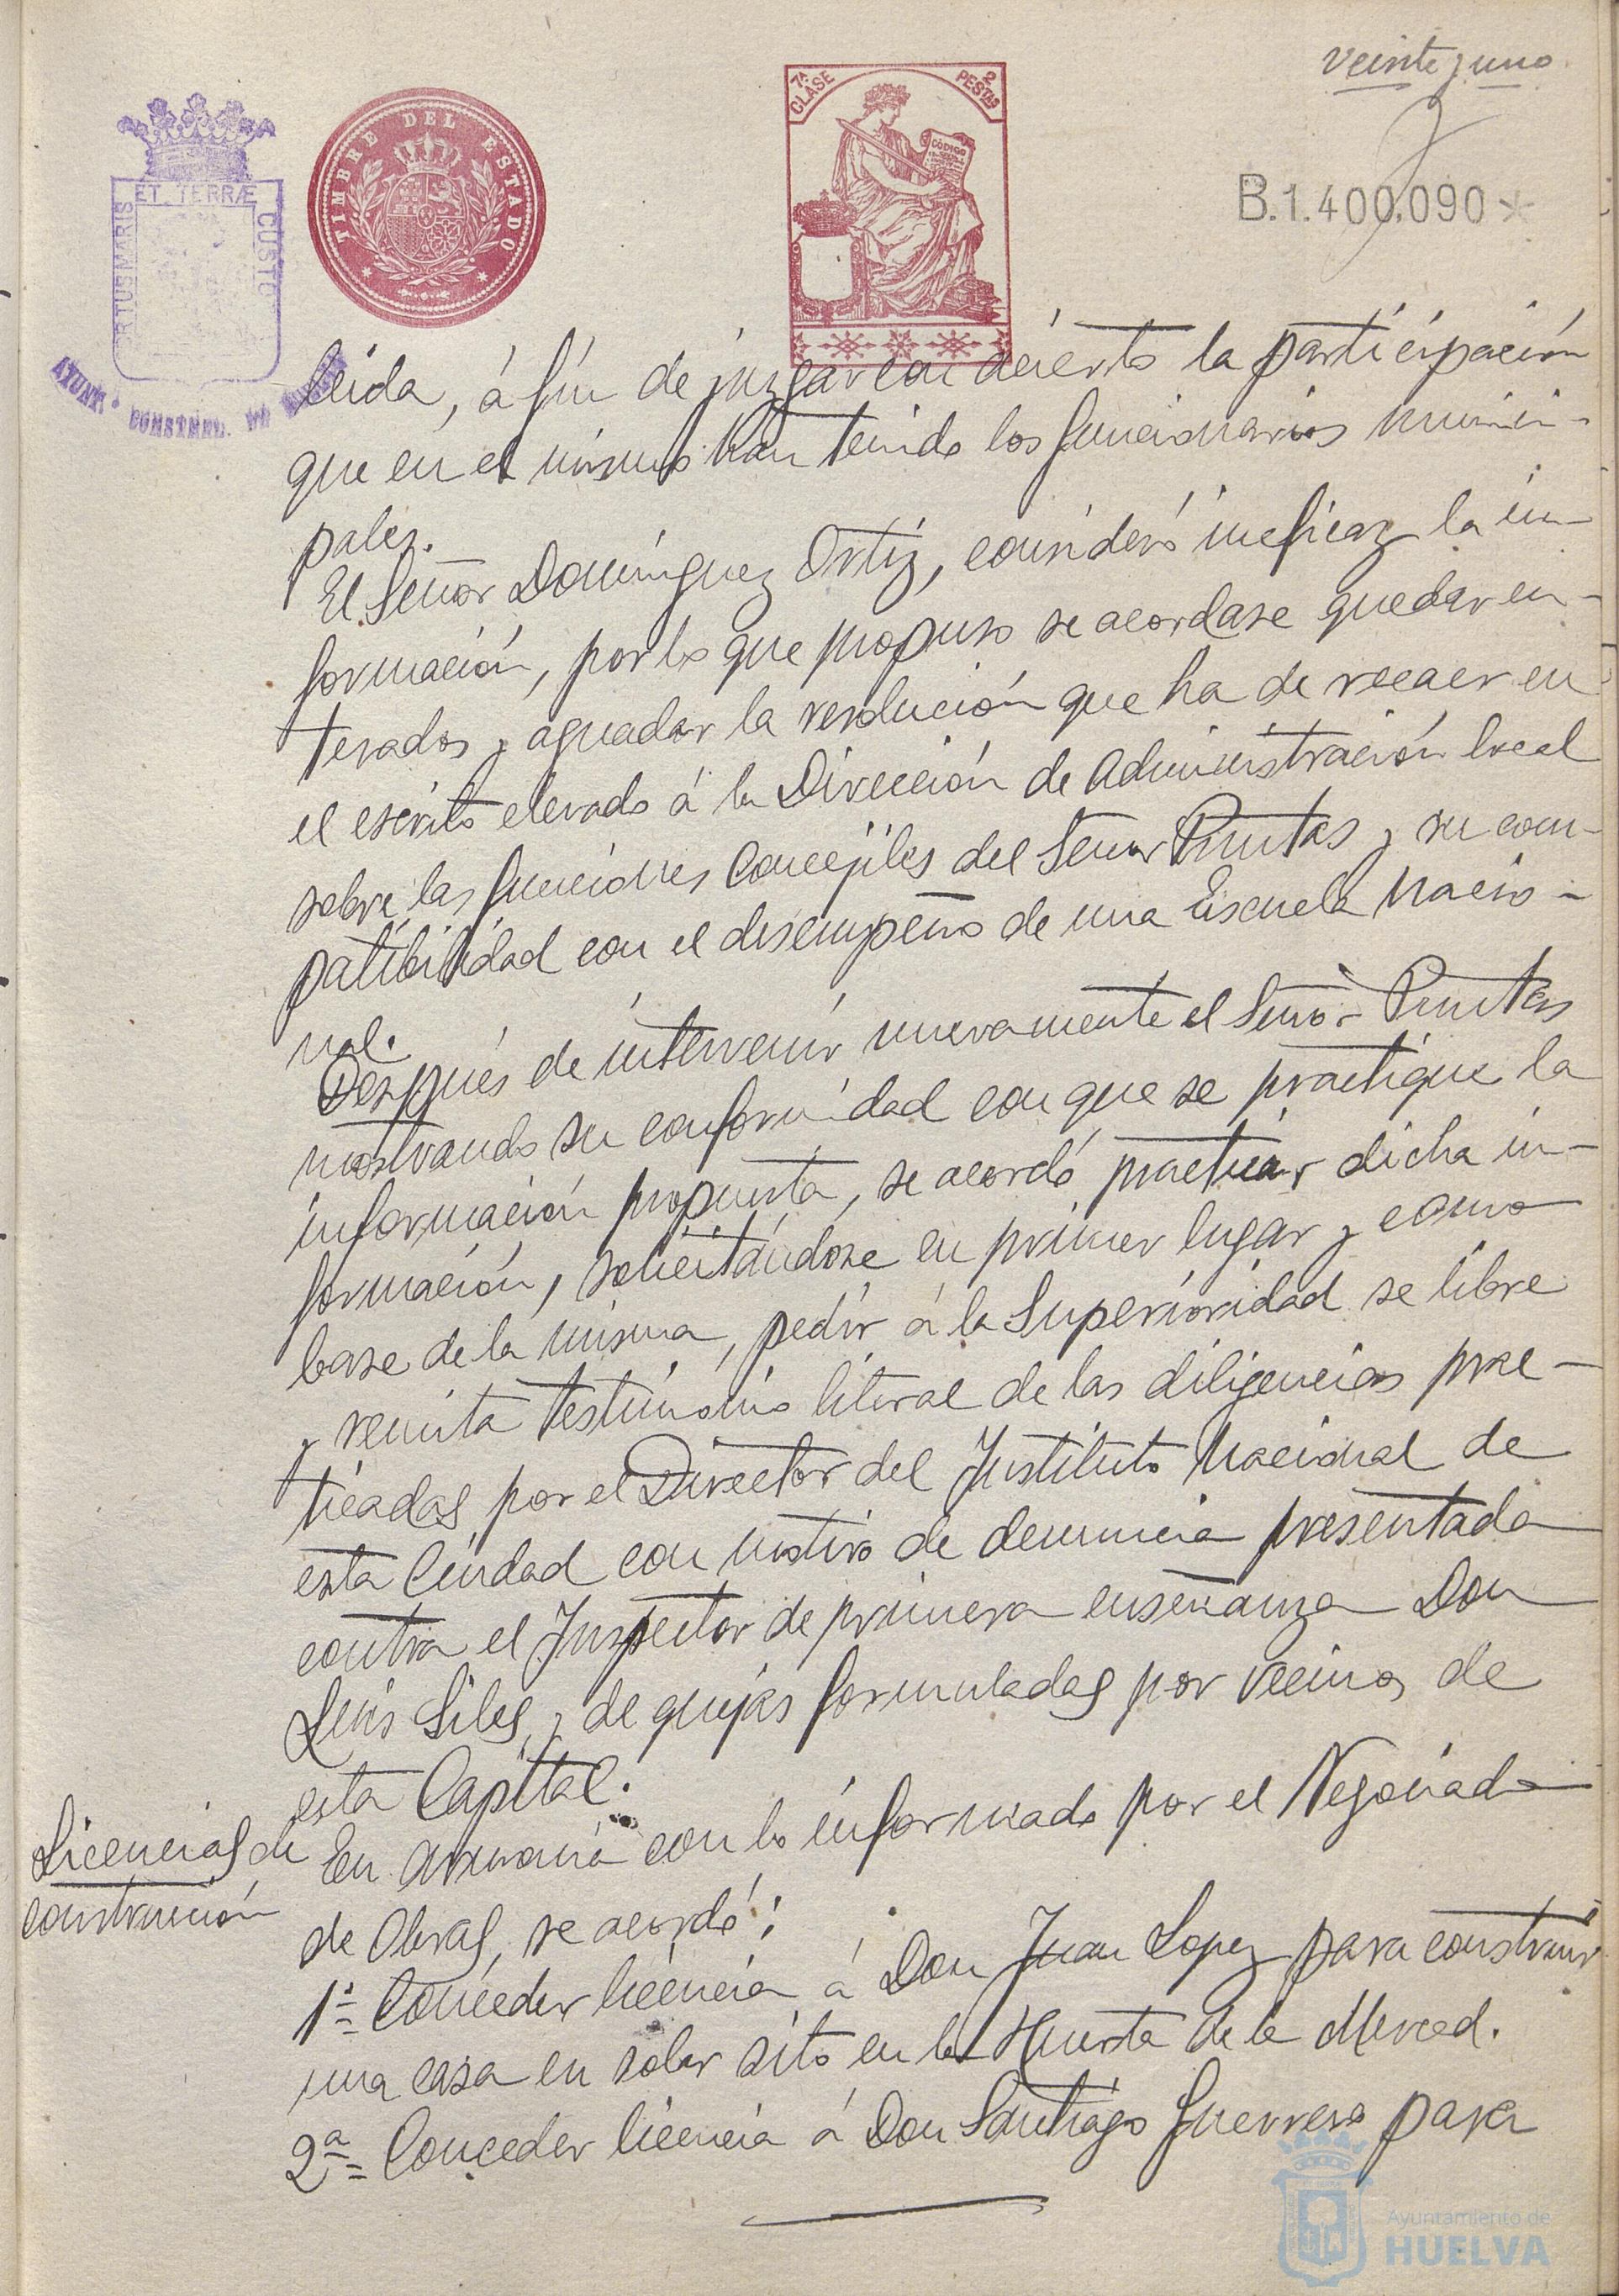 veinte y uno
B.1.400.090*
PORTUS MARIS ET TERRÆ CUSTO
AYUNT.º CONSTNAL. DE
TIMBRE DEL ESTADO
7ª CLASE 2 PESTAS
CÓDIGO
leida, á fin de juzgar con acierto la participación
que en el mismo han tenido los funcionarios munici-
pales.
El Señor Domínguez Ortiz, consideró ineficaz la in-
formación, por lo que propuso se acordase quedar en-
terados y aguadar la resolución que ha de recaer en
el escrito elevado á la Dirección de Administración local
sobre las funciones Concejiles del Señor Puntas y su com-
patibilidad con el desempeño de una Escuela Nacio-
nal.
Después de intervenir nuevamente el Señor Puntas
mostrando su conformidad con que se practique la
información propuesta, se acordó practicar dicha in-
formación, solicitándose en primer lugar y como
base de la misma, pedir á la Superioridad se libre
y remita testimonio literal de las diligencias prac-
ticadas por el Director del Instituto Nacional de
esta Ciudad con motivo de denuncia presentada
contra el Inspector de primera enseñanza Don
Luis Siles y de quejas formuladas por vecinos de
esta Capital.
Licencias de
construcción
En armonía con lo informado por el Negociado
de Obras, se acordó:
1º= Conceder licencia á Don Juan Lopez para construir
una casa en solar sito en la Huerta de la Merced.
2ª= Conceder licencia á Don Santiago Guerrero para
Ayuntamiento de
HUELVA